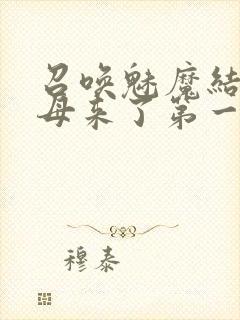 召唤魅魔结
母来了第一
穆泰